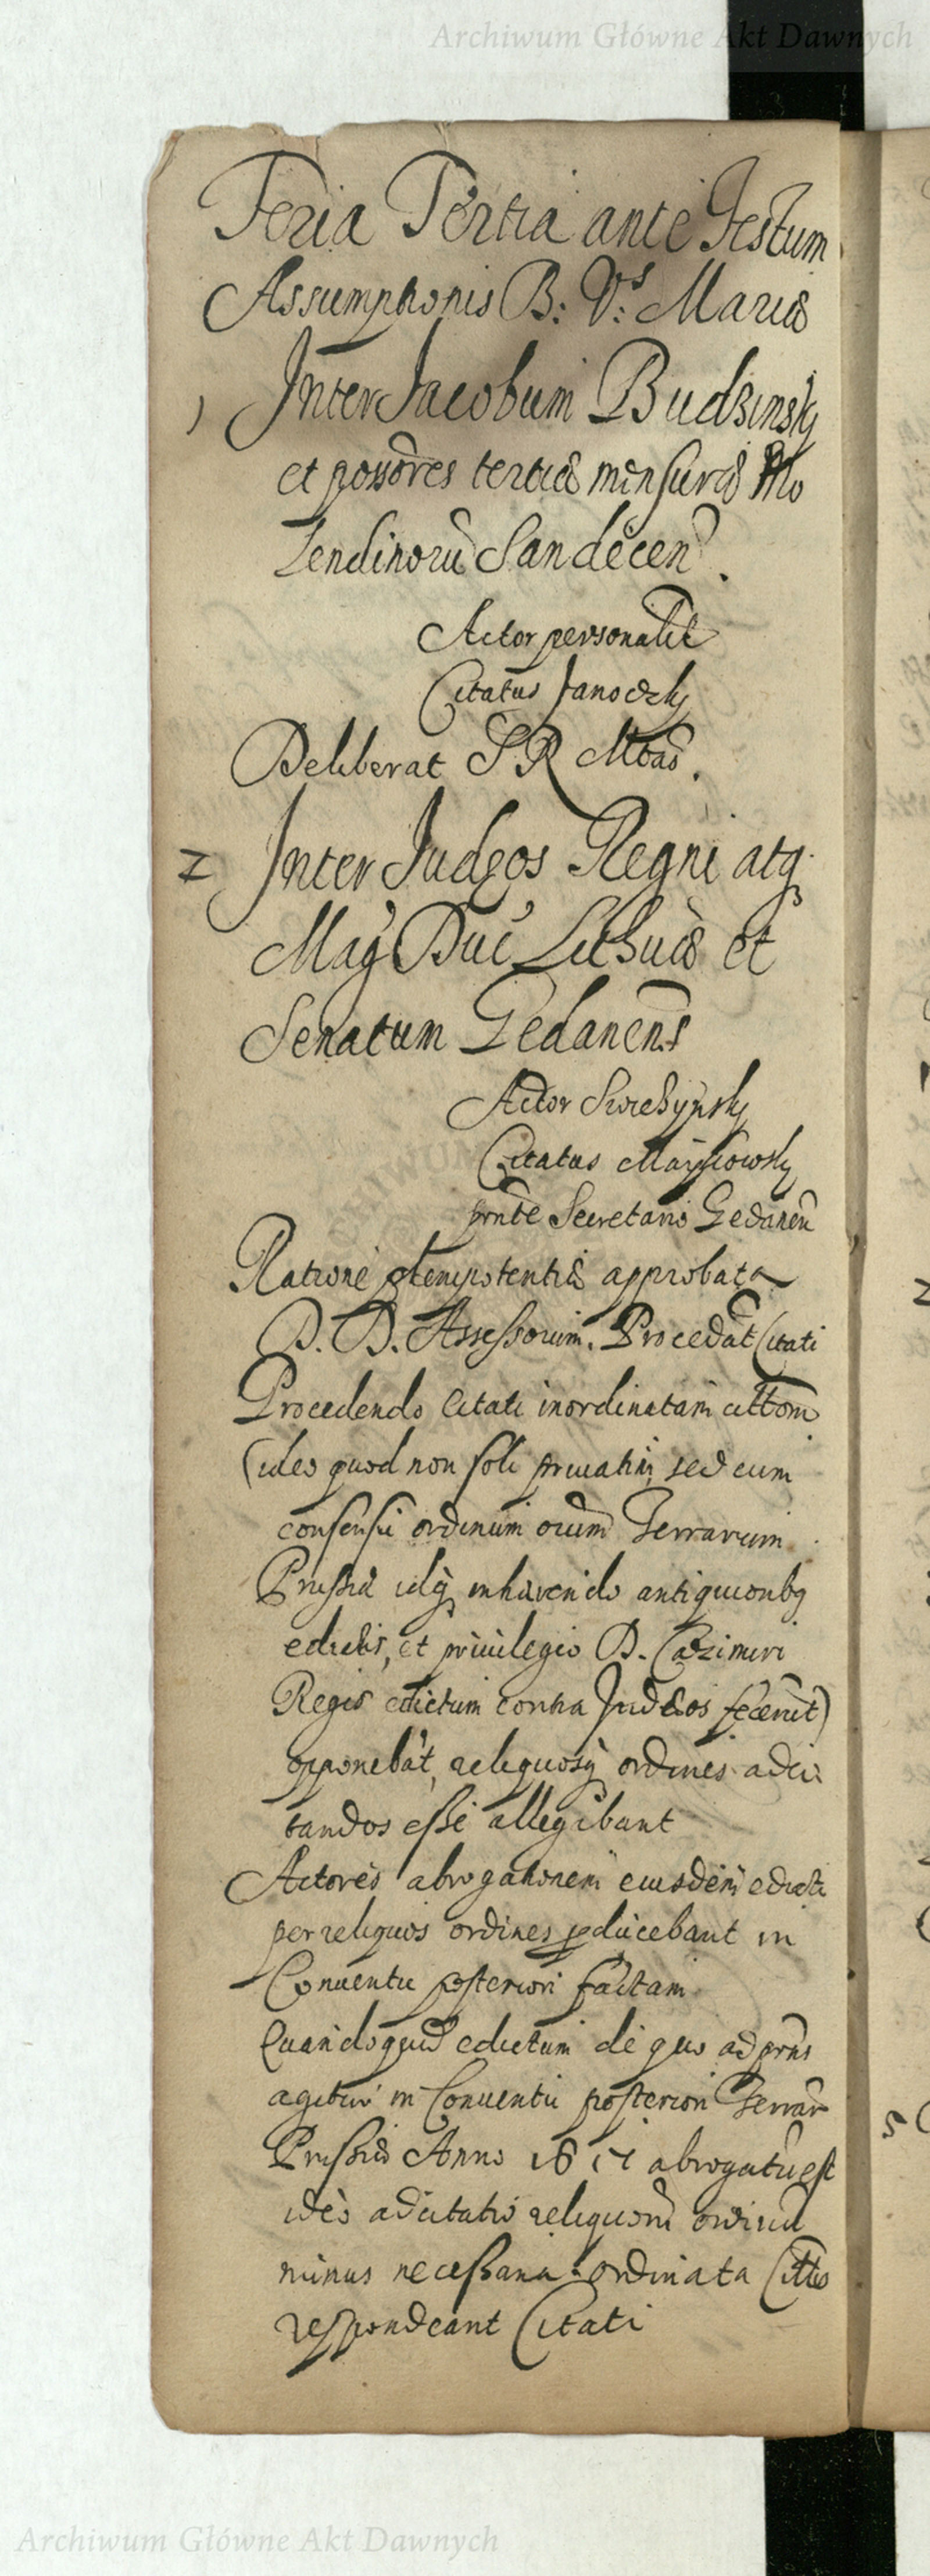 Archiwum Główne Akt Dawnych
Feria Tertia ante Festum
Assumptionis B: V:s Mariæ
1 Inter Jacobum Budzinsky
et possores tertiæ mensuræ Mo
lendinorū Sandecen.
Actor personalit
Citatus Janoczky
Deliberat S R Mtas.
2 Inter Judęos Regni atq
Mag Duc Lithuæ et
Senatum Gedanens
Actor
Citatus
pnte Secretario Gedanen
Ratione plenipotentiæ approbata
D. D. Assessorum. Procedāt Citati
Procedendo Citati inordinatam cittōm
(ideo quod non soli privatim, sed cum
consensu ordinum oium Terrarum
Prussiæ idq inhærendo antiquioribq
edictis, et privilegio D. Cazimiri
Regis edictum contra Judæos fecerūt)
opponebāt, reliquosq ordines adci
tandos esse allegabant
Actores abrogationem eiusdem edicti
per reliquos ordines pducebant in
Conventu posteriori factam
Quandoquid edictum de quo ad prns
agitur in Conventu posteriori Terrar
Prussiæ Anno 1617 abrogatū est
ideo adcitatio reliquorū ordinū
minus necessaria. ordinata Cittio
respondeant Citati
Archiwum Główne Akt Dawnych